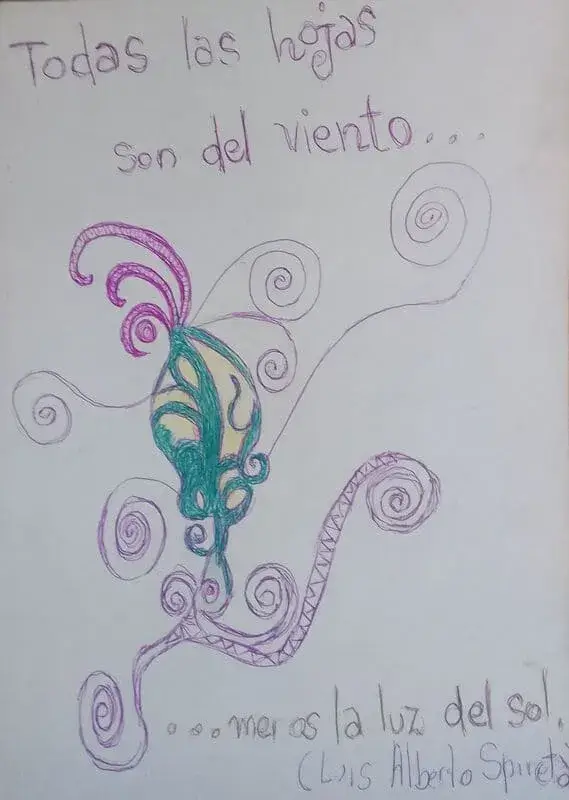 Todas las hojas
son del viento...
...menos la luz del sol.
(Luis Alberto Spinetta